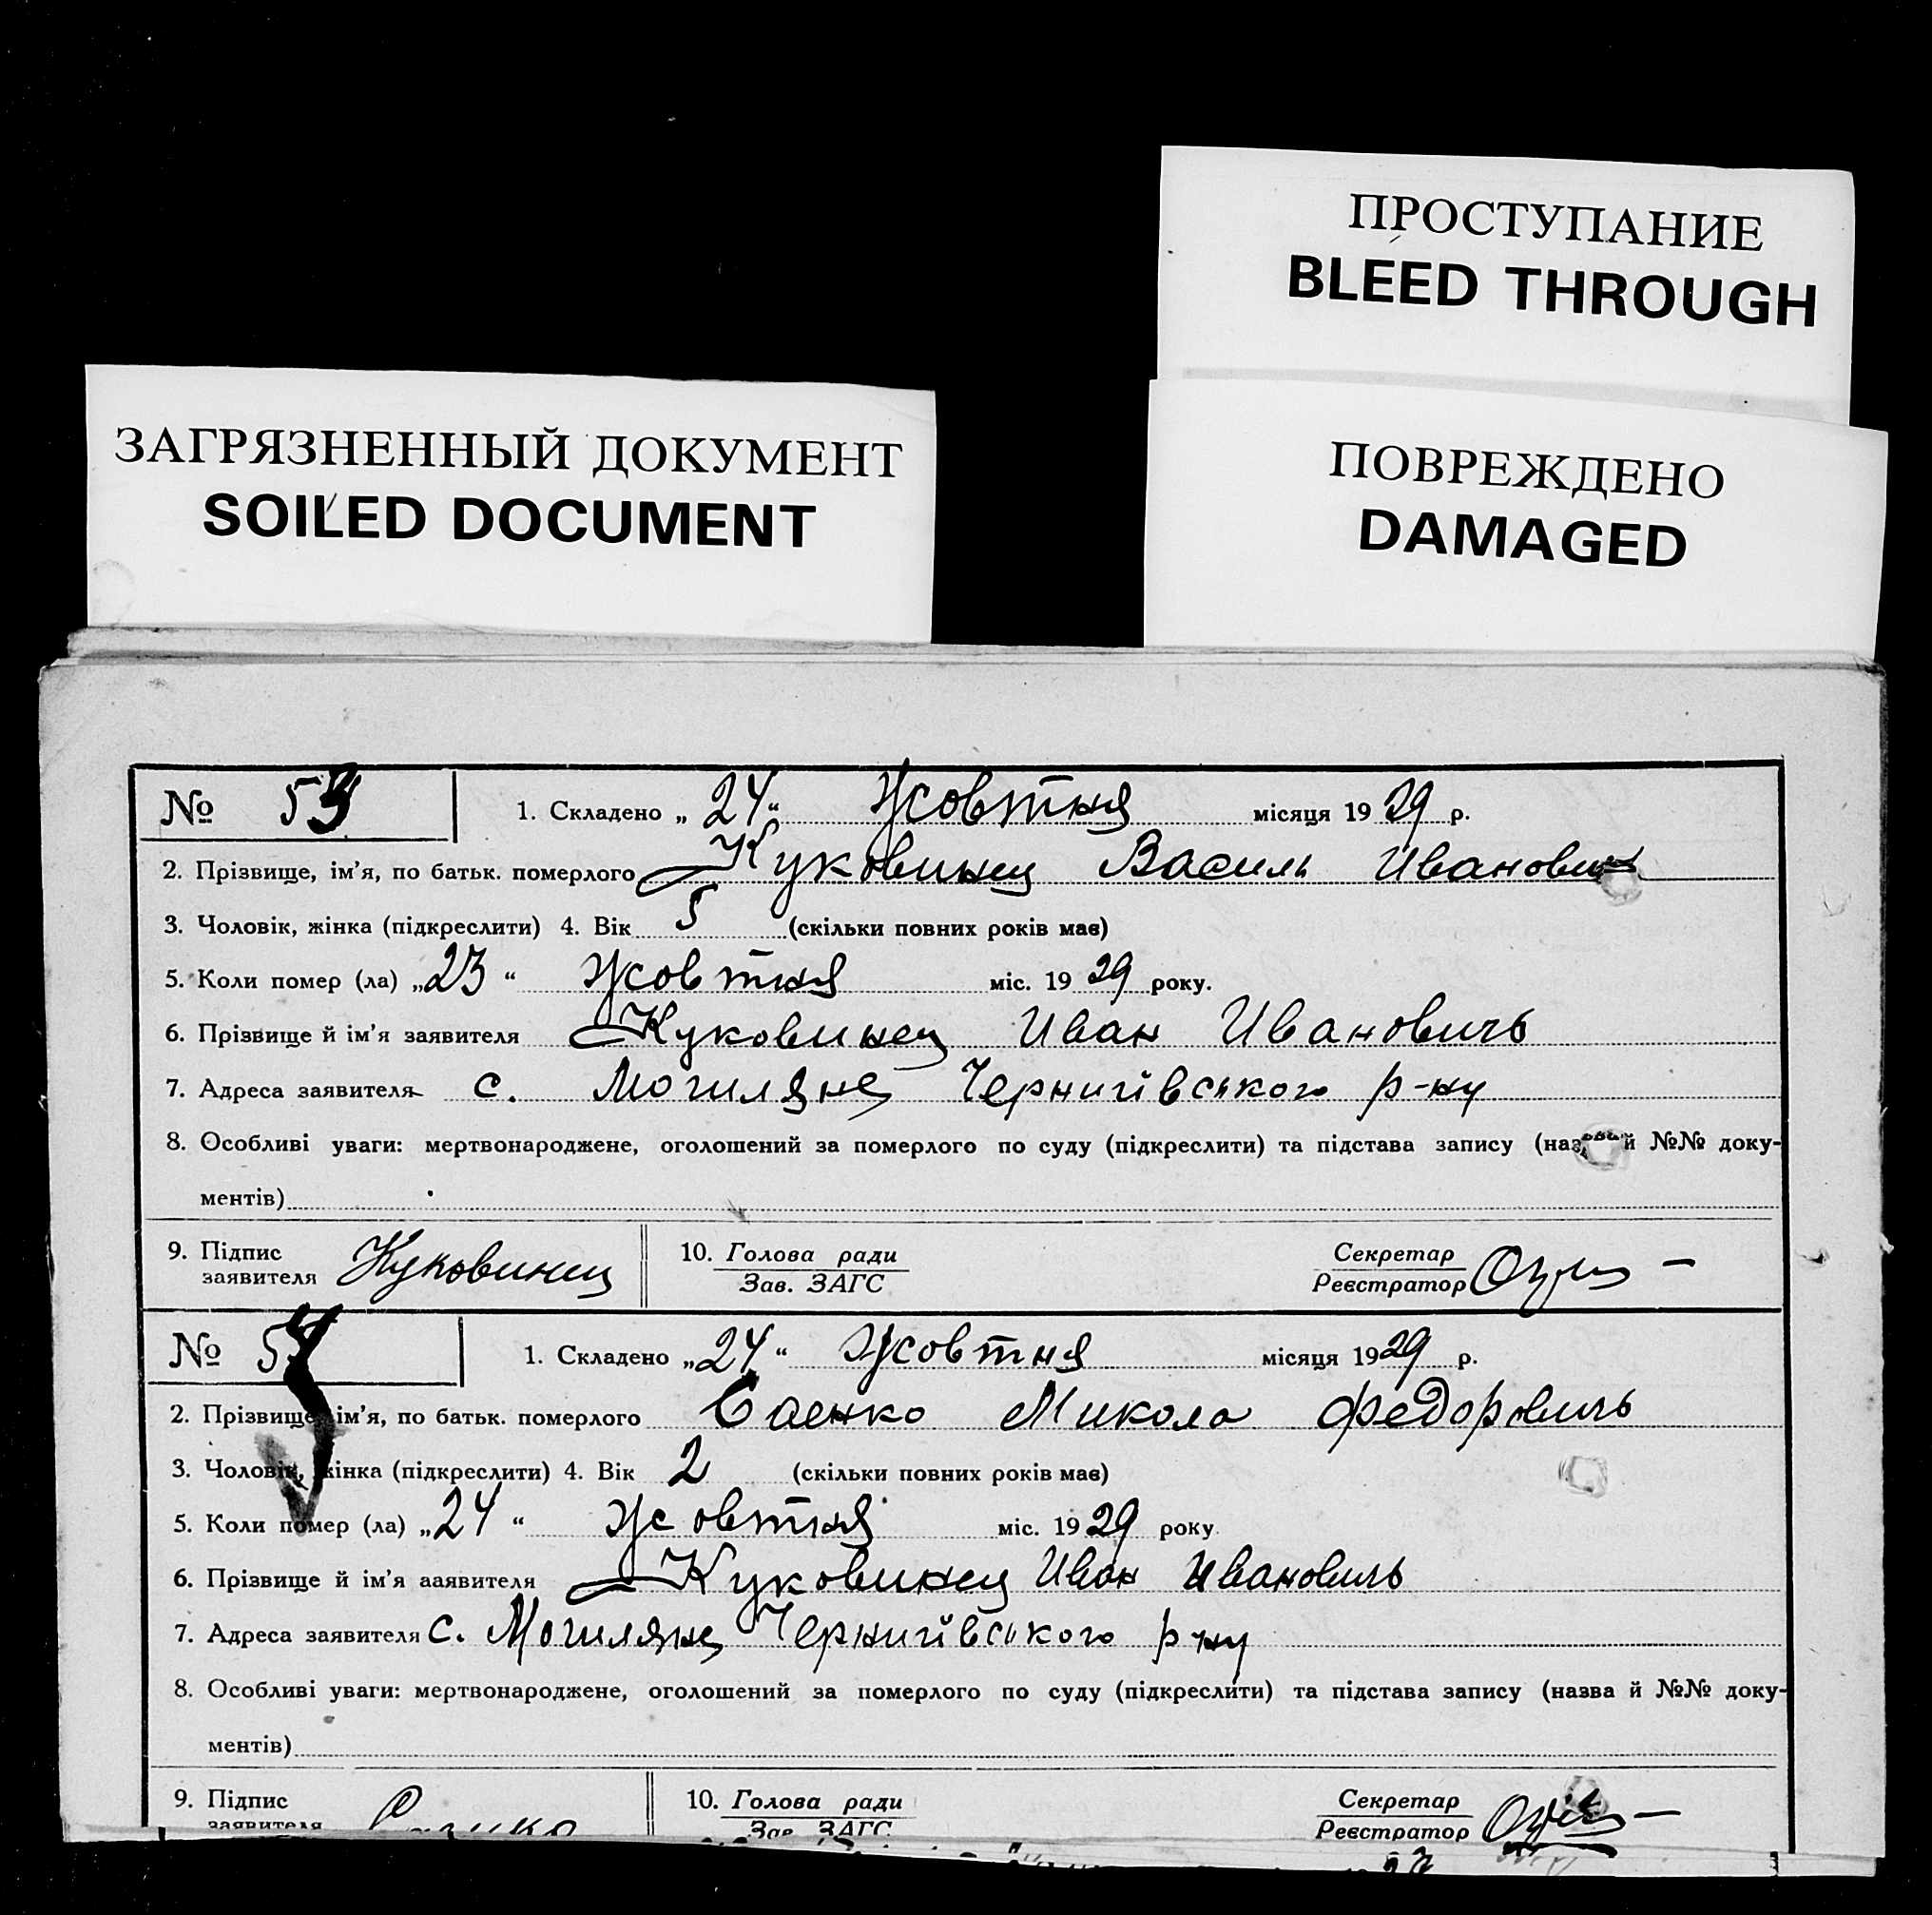 ПРОСТУПАНИЕ
BLEED THROUGH
ЗАГРЯЗНЕННЫЙ ДОКУМЕНТ
SOILED DOCUMENT
ПОВРЕЖДЕНО
DAMAGED
№ 53 1. Складено „24“ Жовтня місяця 1929 р.
2. Прізвище, ім'я, по батьк. померлого Куковинец Василь Иванович
3. Чоловік, жінка (підкреслити) 4. Вік 5 (скільки повних років має)
5. Коли помер (ла) „23“ Жовтня міс. 1929 року.
6. Прізвище й ім'я заявителя Куковинец Иван Ивановичь
7. Адреса заявителя с. Могиляне Чернигівського р-ну
8. Особливі уваги: мертвонароджене, оголошений за померлого по суду (підкреслити) та підстава запису (назва й №№ доку-
ментів)
9. Підпис заявителя Куковинец 10. Голова ради Секретар
Зав. ЗАГС Реєстратор
№ 54 1. Складено „24“ Жовтня місяця 1929 р.
2. Прізвище, ім'я, по батьк. померлого Саенко Микола Федоровичь
3. Чоловік, жінка (підкреслити) 4. Вік 2 (скільки повних років має)
5. Коли помер (ла) „24“ Жовтня міс. 1929 року
6. Прізвище й ім'я ааявителя Куковинец Иван Ивановичь
7. Адреса заявителя с. Могиляне Чернигівського р-ну
8. Особливі уваги: мертвонароджене, оголошений за померлого по суду (підкреслити) та підстава запису (назва й №№ доку-
ментів)
9. Підпис заявителя 10. Голова ради Секретар
Зав. ЗАГС Реєстратор